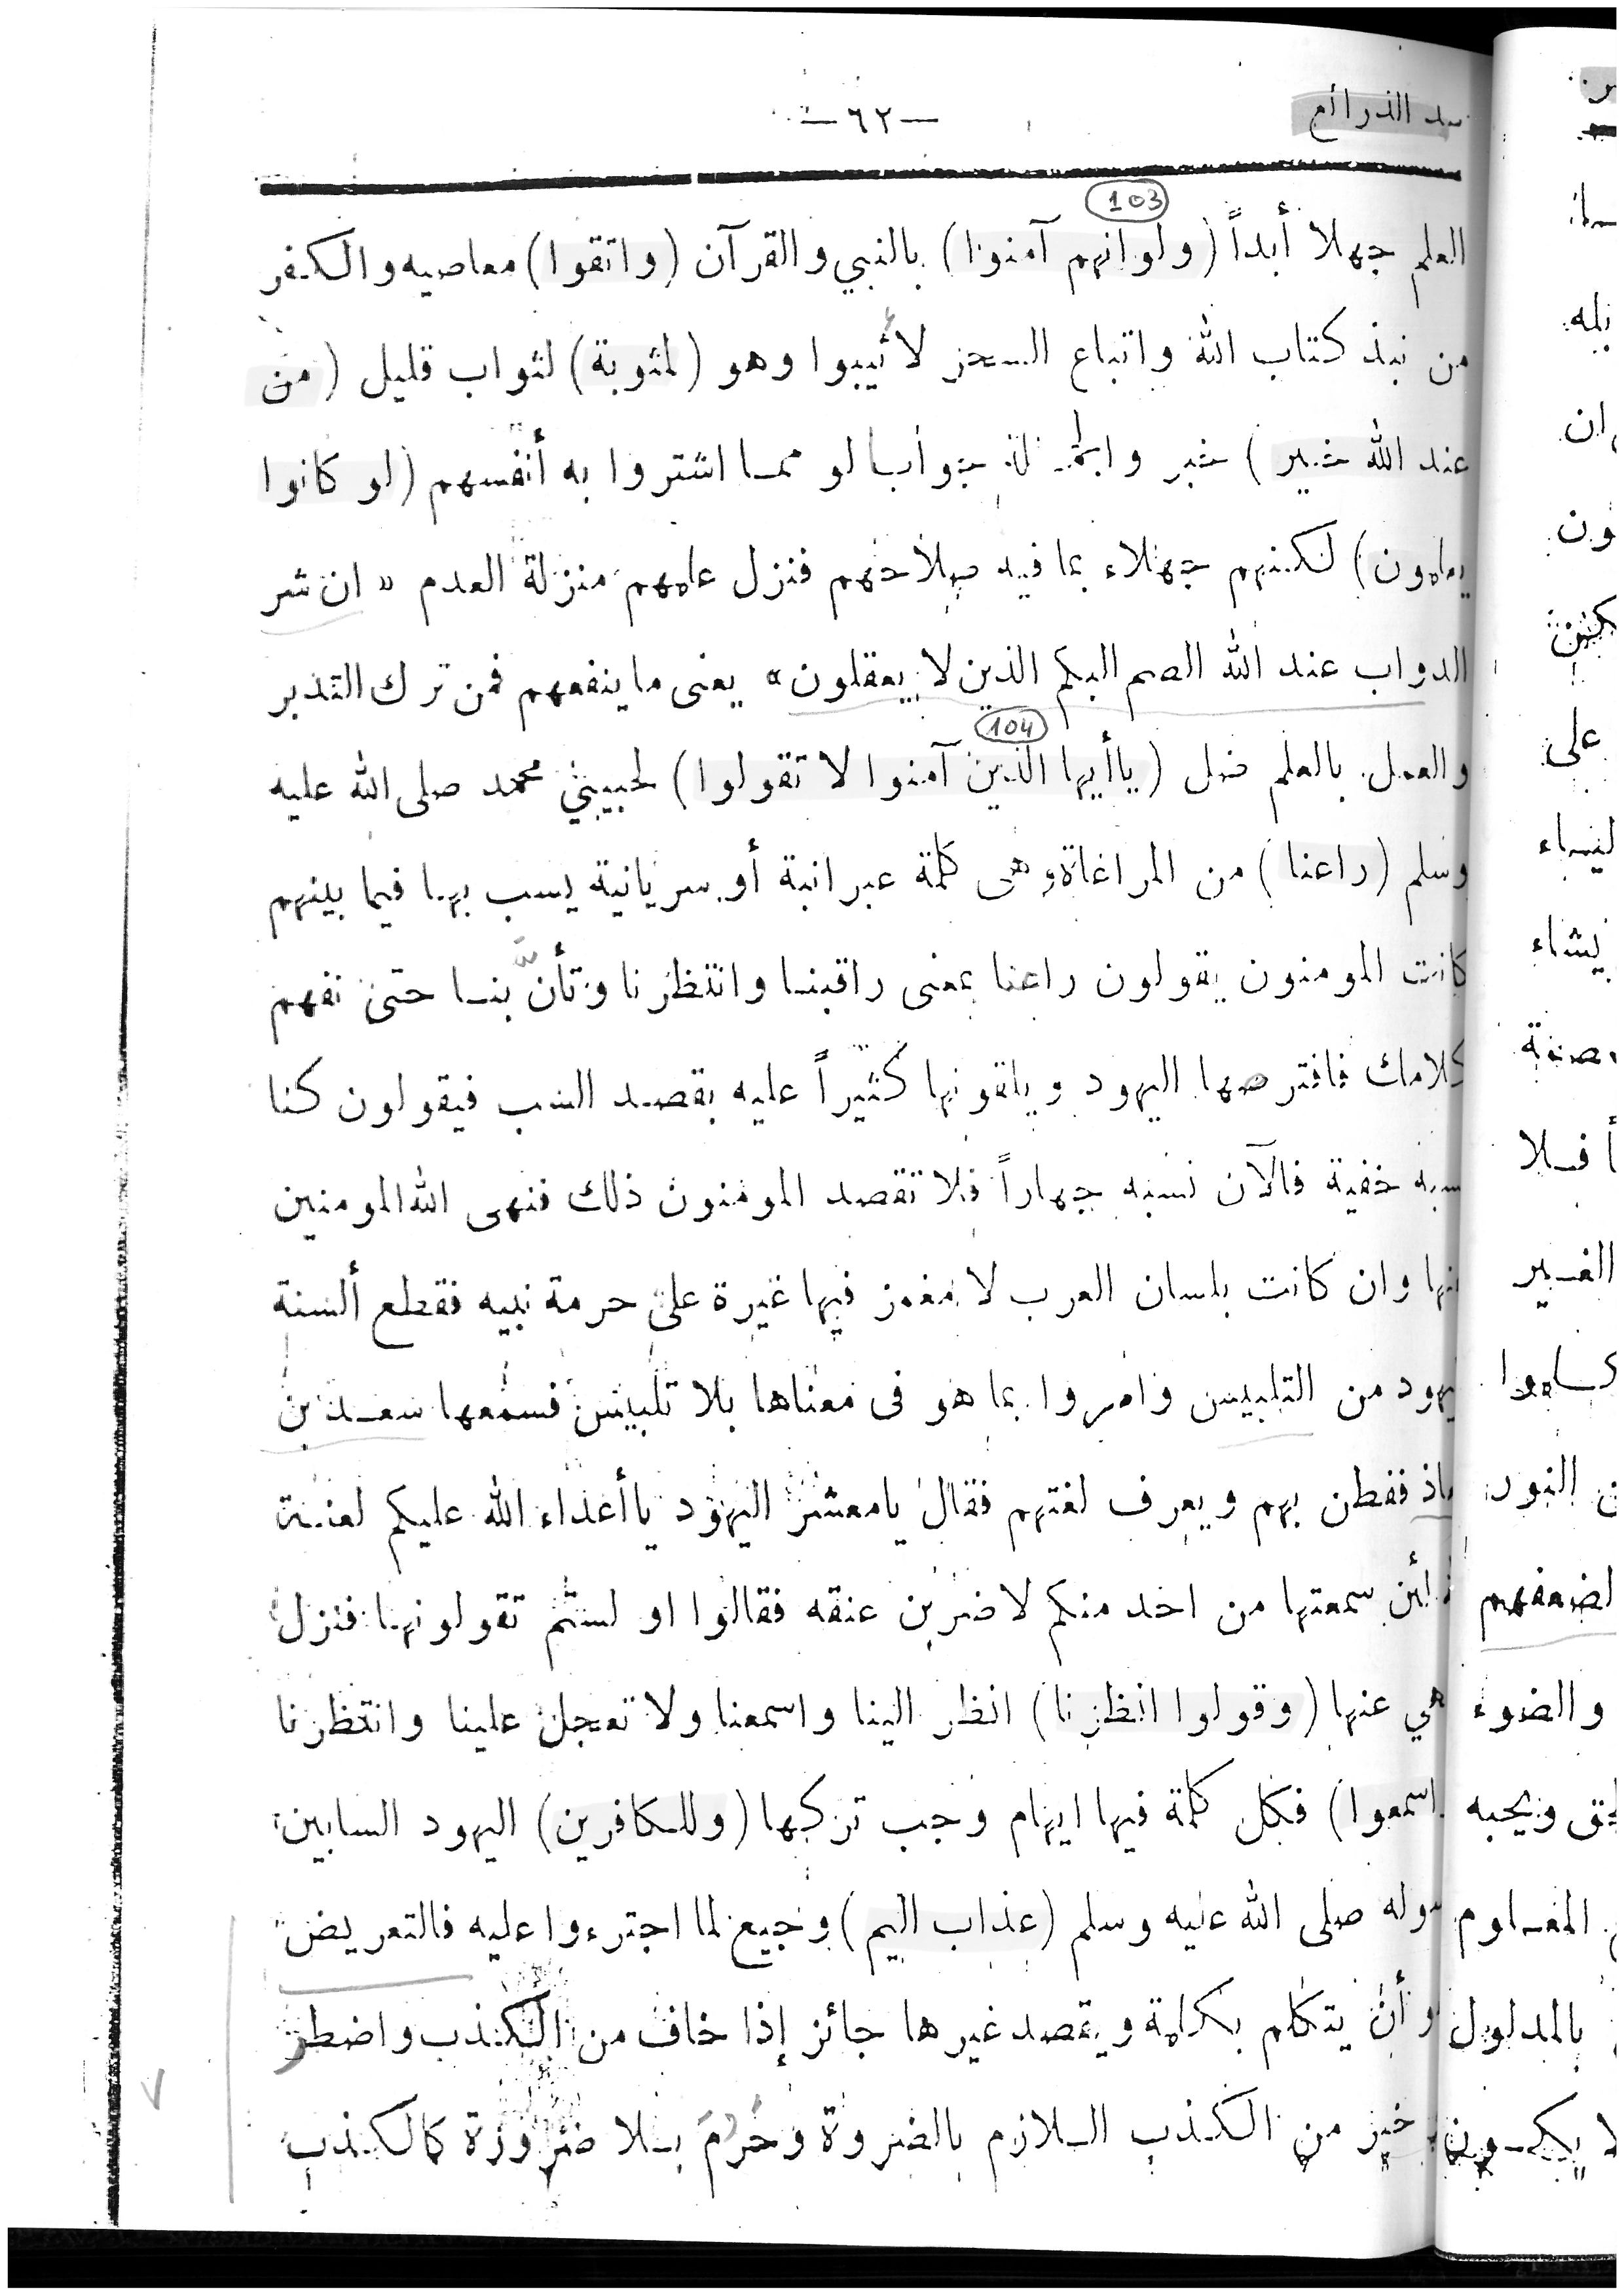 سد الذرائع
—٦٢—
103
العلم جهلا أبداً (ولوانهم آمنوا) بالنبي والقرآن (واتقوا) معاصيه والكفر
من نبذ كتاب الله واتباع السحر لأثيبوا وهو (لمثوبة) لثواب قليل (من
عند الله خير) خبر والجملة جوابا لو مما اشتروا به أنفسهم (لو كانوا
يعلمون) لكنهم جهلاء بما فيه صلاحهم فنزل علمهم منزلة العدم «ان شر
الدواب عند الله الصم البكم الذين لا يعقلون» يعنى ما ينفعهم فمن ترك التدبر
104
والعمل بالعلم ضل (ياأيها الذين آمنوا لا تقولوا) لحبيبي محمد صلى الله عليه
وسلم (راعنا) من المراعاة وهى كلمة عبرانية أو سريانية يسب بها فيما بينهم
كانت المومنون يقولون راعنا بمعنى راقبنا وانتظرنا وتأنّ بنا حتى نفهم
كلامك فافترصها اليهود ويلقونها كثيراً عليه بقصد السب فيقولون كنا
نسبه خفية فالآن نسبه جهاراً فلا تقصد المومنون ذلك فنهى الله المومنين
عنها وان كانت بلسان العرب لا مغمز فيها غيرة على حرمة نبيه فقطع ألسنة
اليهود من التلبيس وامروا بما هو فى معناها بلا تلبيس فسمعها سعد بن
معاذ ففطن بهم ويعرف لغتهم فقال يامعشر اليهود ياأعداء الله عليكم لعنة
لئن سمعتها من احد منكم لاضربن عنقه فقالوا او لستم تقولونها فنزل
هي عنها (وقولوا انظرنا) انظر الينا واسمعنا ولا تعجل علينا وانتظرنا
اسمعوا) فكل كلمة فيها ايهام وجب تركها (وللكافرين) اليهود السابين
سوله صلى الله عليه وسلم (عذاب اليم) وجيع لما اجترءوا عليه فالتعريض
وأن يتكلم بكلمة ويقصد غيرها جائز إذا خاف من الكذب واضطر
خير من الكذب اللازم بالضروة وحَرُمَ بلا ضرورة كالكذب
بله
ان
ون
على
يشاء
أفلا
الغير
النور
لضعفهم
والضوء
ويحبه
المعلوم
بالمدلول
لا يكون